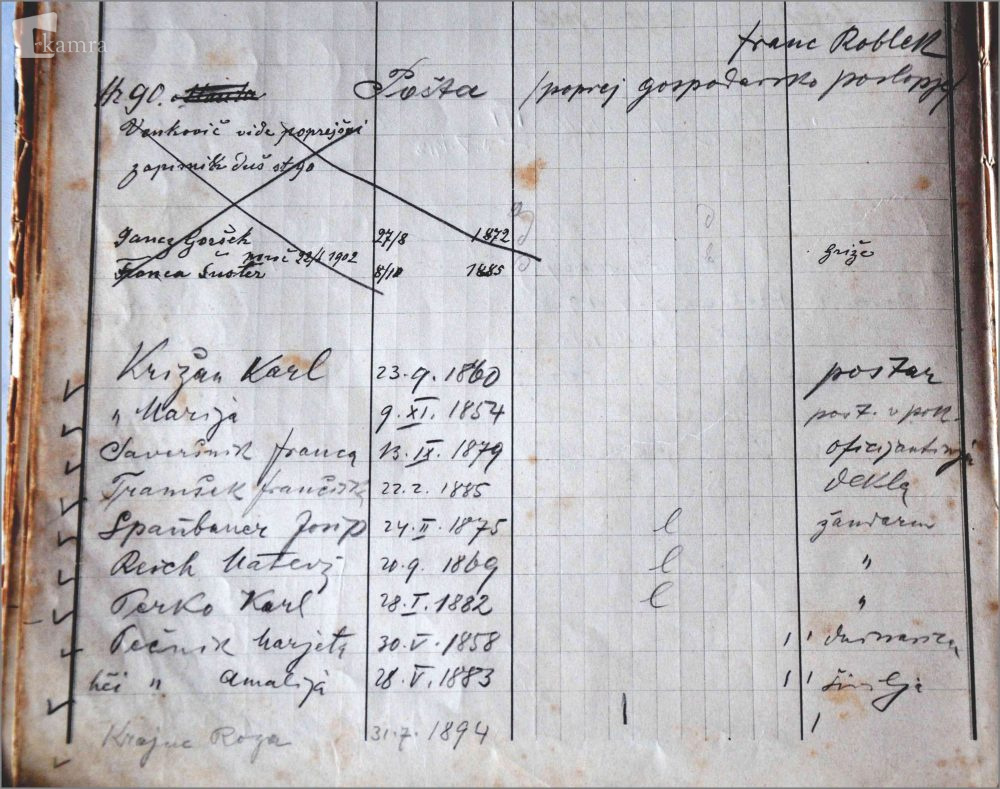 kamra
Franc Roblek
Nr 90. Pošta (poprej gospodarsko poslopje)
Vonkovič vide poprejšni
zapisnik duš št 90
Janez Goršek 27/8 1872
22/1 1902 Griže
Franca Šuster 8/10 1885
Križan Karl 23.9.1860 poštar
" Marija 9.XI.1854 pošt. v pok.
Saveršnik Franca 13.IX.1879 oficijantinja
Tramšek Frančišk 22.2.1885 dekla
Spanbauer Josip 24.II.1875 l žandarm
Reich Matevž 20.9.1869 l "
Terko Karl 28.I.1882 l "
Pečnik Marjeta 30.V.1858 1 1
hči " Amalija 28.V.1883 1 1 šivilja
Krajnc Roza 31.7.1894 1 1